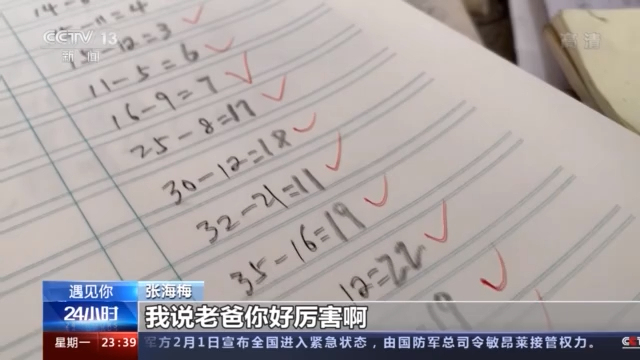 CCTV 13
新闻
高清
11=4
12=3
11-5=6
16-9=7
25-8=17
30-12=18
32-21=11
35-16=19
12=22
19
遇见你
张海梅
24小时
我说老爸你好厉害啊
星期一 23:39
军方2月1日宣布全国进入紧急状态，由国防军总司令敏昂莱接管权力。